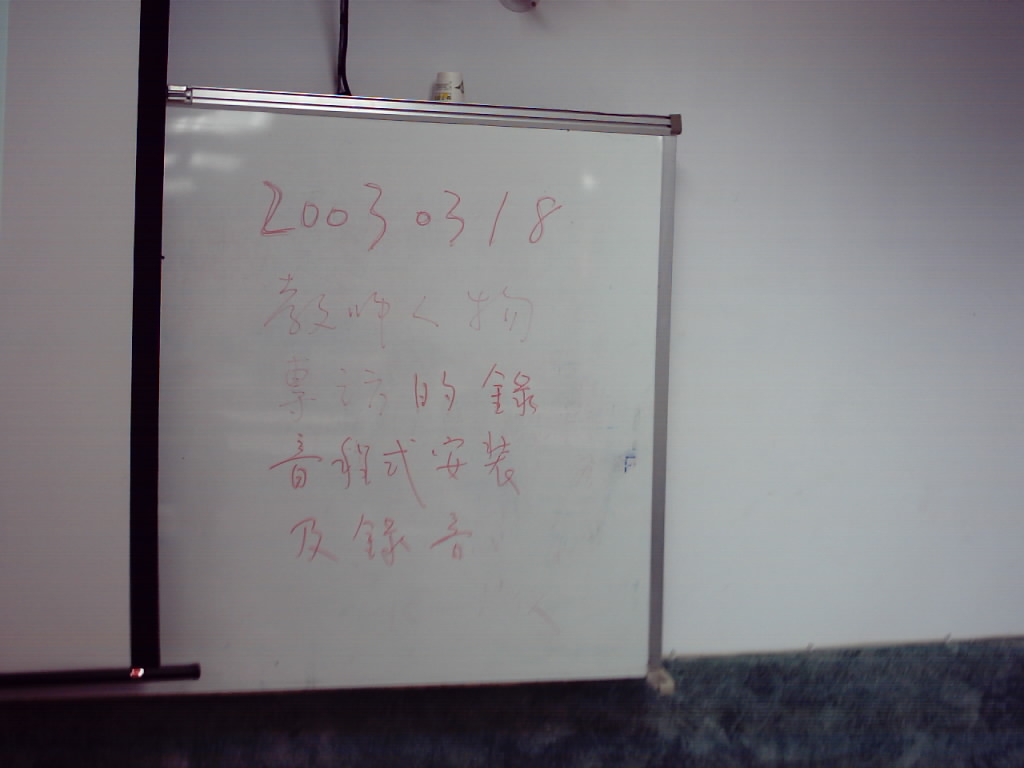 20030318
教師人物
專訪的錄
音程式安裝
及錄音